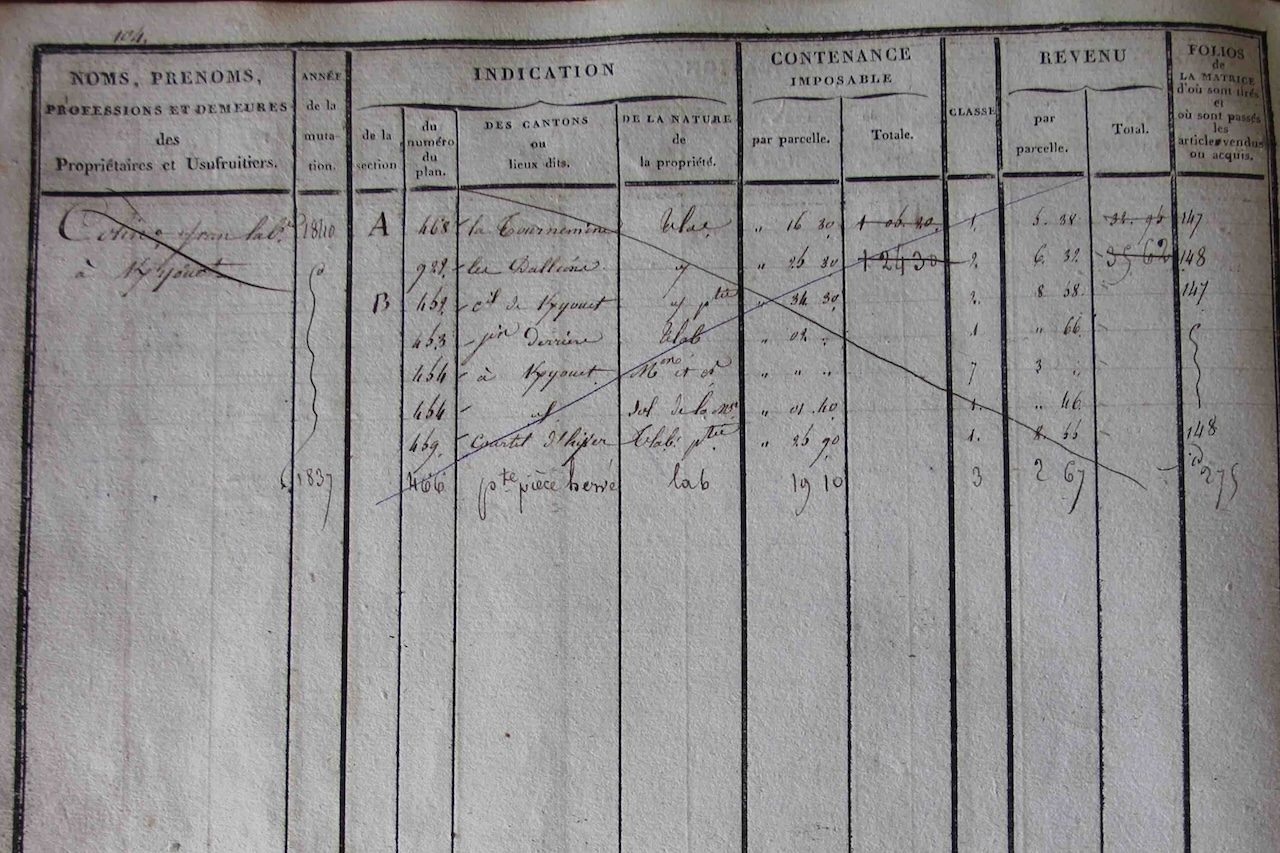 104.
NOMS, PRENOMS,
PROFESSIONS ET DEMEURES
des
Propriétaires et Usufruitiers.
ANNÉE
de la
muta-
tion.
INDICATION
de la
section
du
numéro
du
plan.
DES CANTONS
ou
lieux dits.
DE LA NATURE
de
la propriété.
CONTENANCE
IMPOSABLE
par parcelle.
Totale.
CLASSE
REVENU
par
parcelle.
Total.
FOLIOS
de
LA MATRICE
d'où sont tirés
et
où sont passés
les
articles vendus
ou acquis.
1840 A 468 la Tournemine " 16 30 1 06 20 1. 5. 38 147
à 922 " 26 30 1 24 30 2. 6. 32 35 62 148
B 452 de " 34 30 2. 8 58 147
453 jin Derrière " 02 " 1 " 66
454 à Mon et " " " 7 3 "
454 Sol de la " 01 40 1. " 46
459 Courtil " 26 90 1. 8. 148
1837 466 pte pièce hervé lab 19 10 3 2 67 275